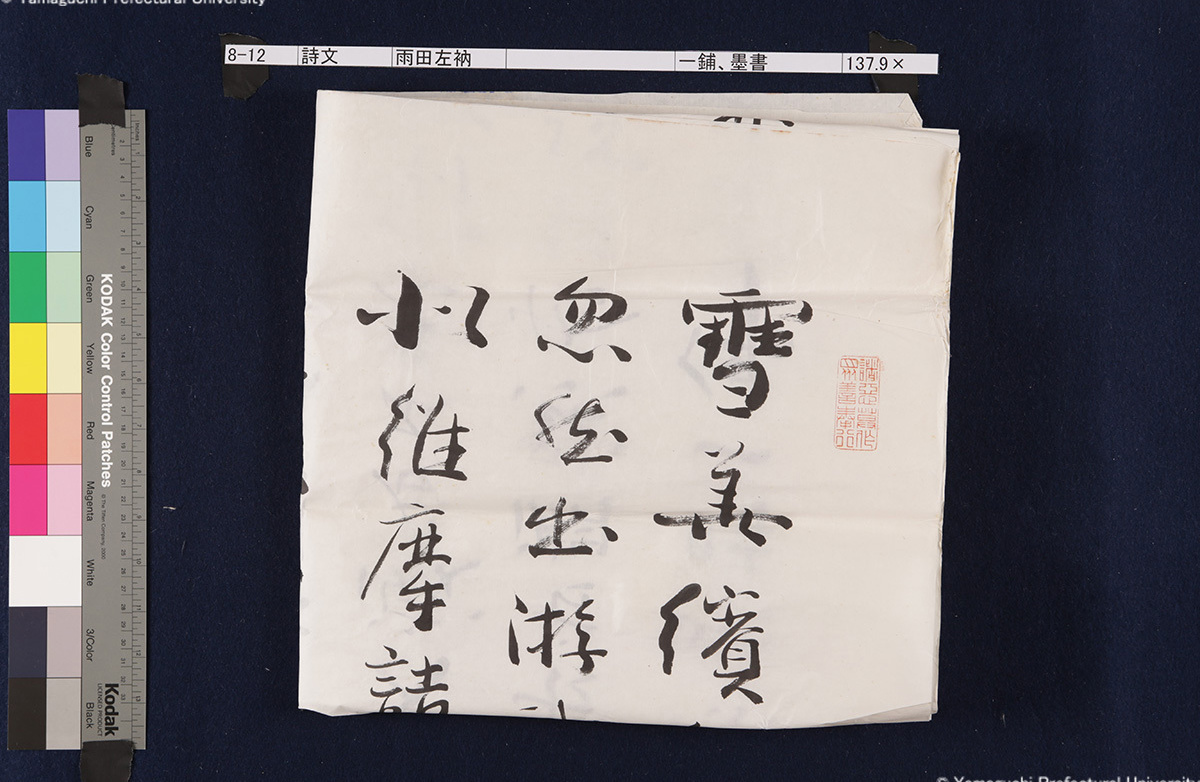 © Yamaguchi Prefectural University
8-12 詩文 雨田左衲 一鋪、墨書 137.9×
諸悪莫作
衆善奉行
雪美繽
忽然出游
似維摩詰
Blue Cyan Green Yellow Red Magenta White 3/Color Black
KODAK Color Control Patches
© The Tiffen Company, 2000
Kodak
LICENSED PRODUCT
© Yamaguchi Prefectural University